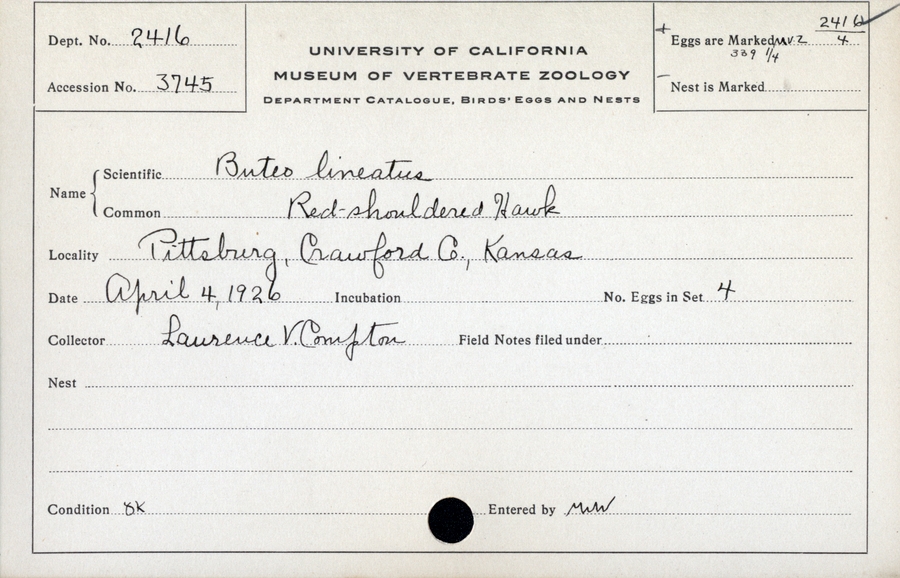 Dept. No. 2416
Accession No. 3745
UNIVERSITY OF CALIFORNIA
MUSEUM OF VERTEBRATE ZOOLOGY
DEPARTMENT CATALOGUE, BIRDS' EGGS AND NESTS
+ Eggs are Marked MVZ 2416/4
339 1/4
— Nest is Marked
Name { Scientific Buteo lineatus
Common Red-shouldered Hawk
Locality Pittsburg, Crawford Co., Kansas
Date April 4, 1926 Incubation No. Eggs in Set 4
Collector Laurence V. Compton Field Notes filed under
Nest
Condition OK Entered by